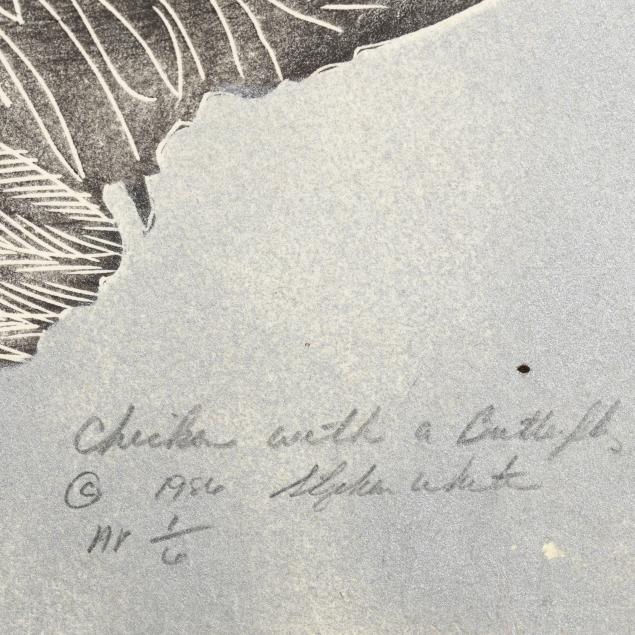 Chicken with a Butterfly
© 1986 Stephen White
AP 1/6